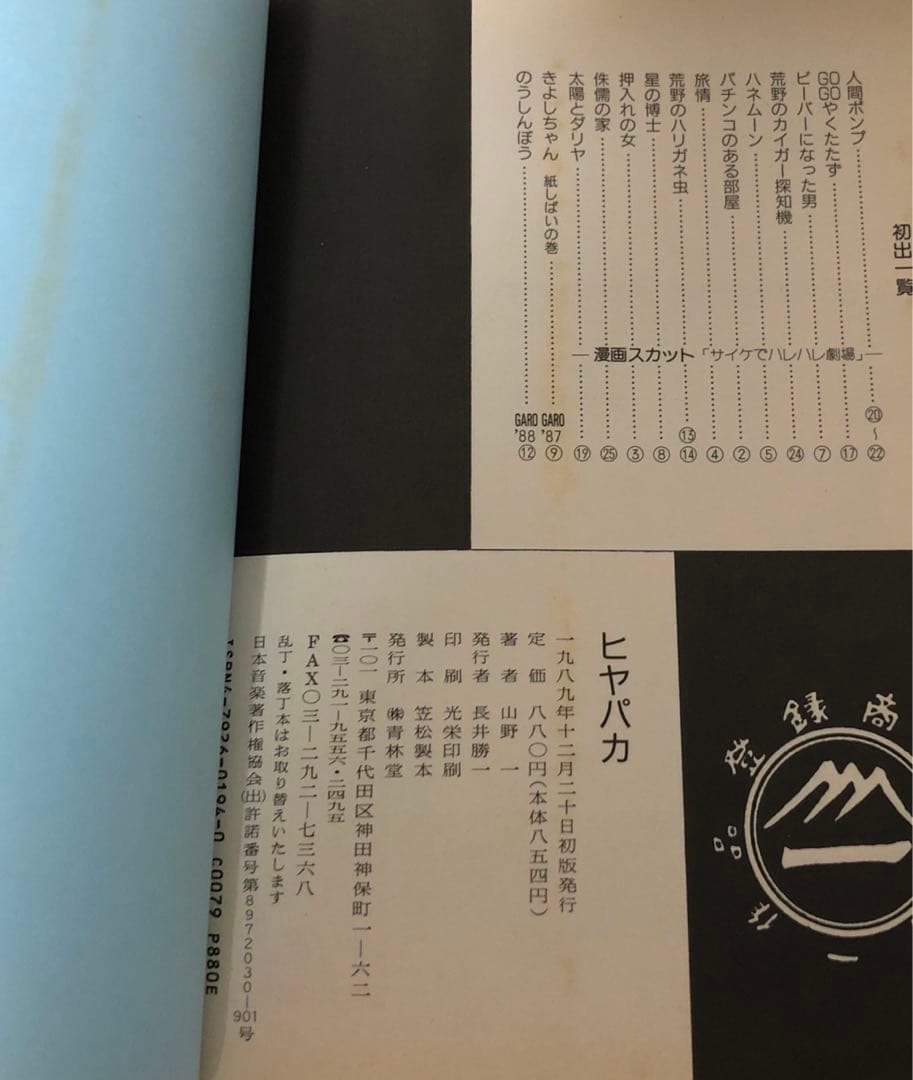 初出一覧
人間ポンプ 漫画スカット「サイケでハレハレ劇場」 ⑳〜㉒
GOGOやくたたず ⑰
ビーバーになった男 ⑦
荒野のカイガー探知機 ㉔
ハネムーン ⑤
パチンコのある部屋 ②
旅情 ④
荒野のハリガネ虫 ⑬ ⑭
星の博士 ⑧
押入れの女 ③
侏儒の家 ㉕
太陽とダリヤ ⑲
きよしちゃん 紙しばいの巻 GARO '87 ⑨
のうしんぼう GARO '88 ⑫
ヒヤパカ
一九八九年十二月二十日初版発行
定価 八八〇円(本体八五四円)
著者 山野一
発行者 長井勝一
印刷 光栄印刷
製本 笠松製本
発行所 ㈱青林堂
〒一〇一 東京都千代田区神田神保町一—六二
☎〇三—二九一—九五五六・二四九五
FAX〇三—二九二—七三六八
乱丁・落丁本はお取り替えいたします
日本音楽著作権協会(出)許諾番号第8972030—901号
ISBN4-7926-0194-0 C0079 P880E
登録
品
作
一